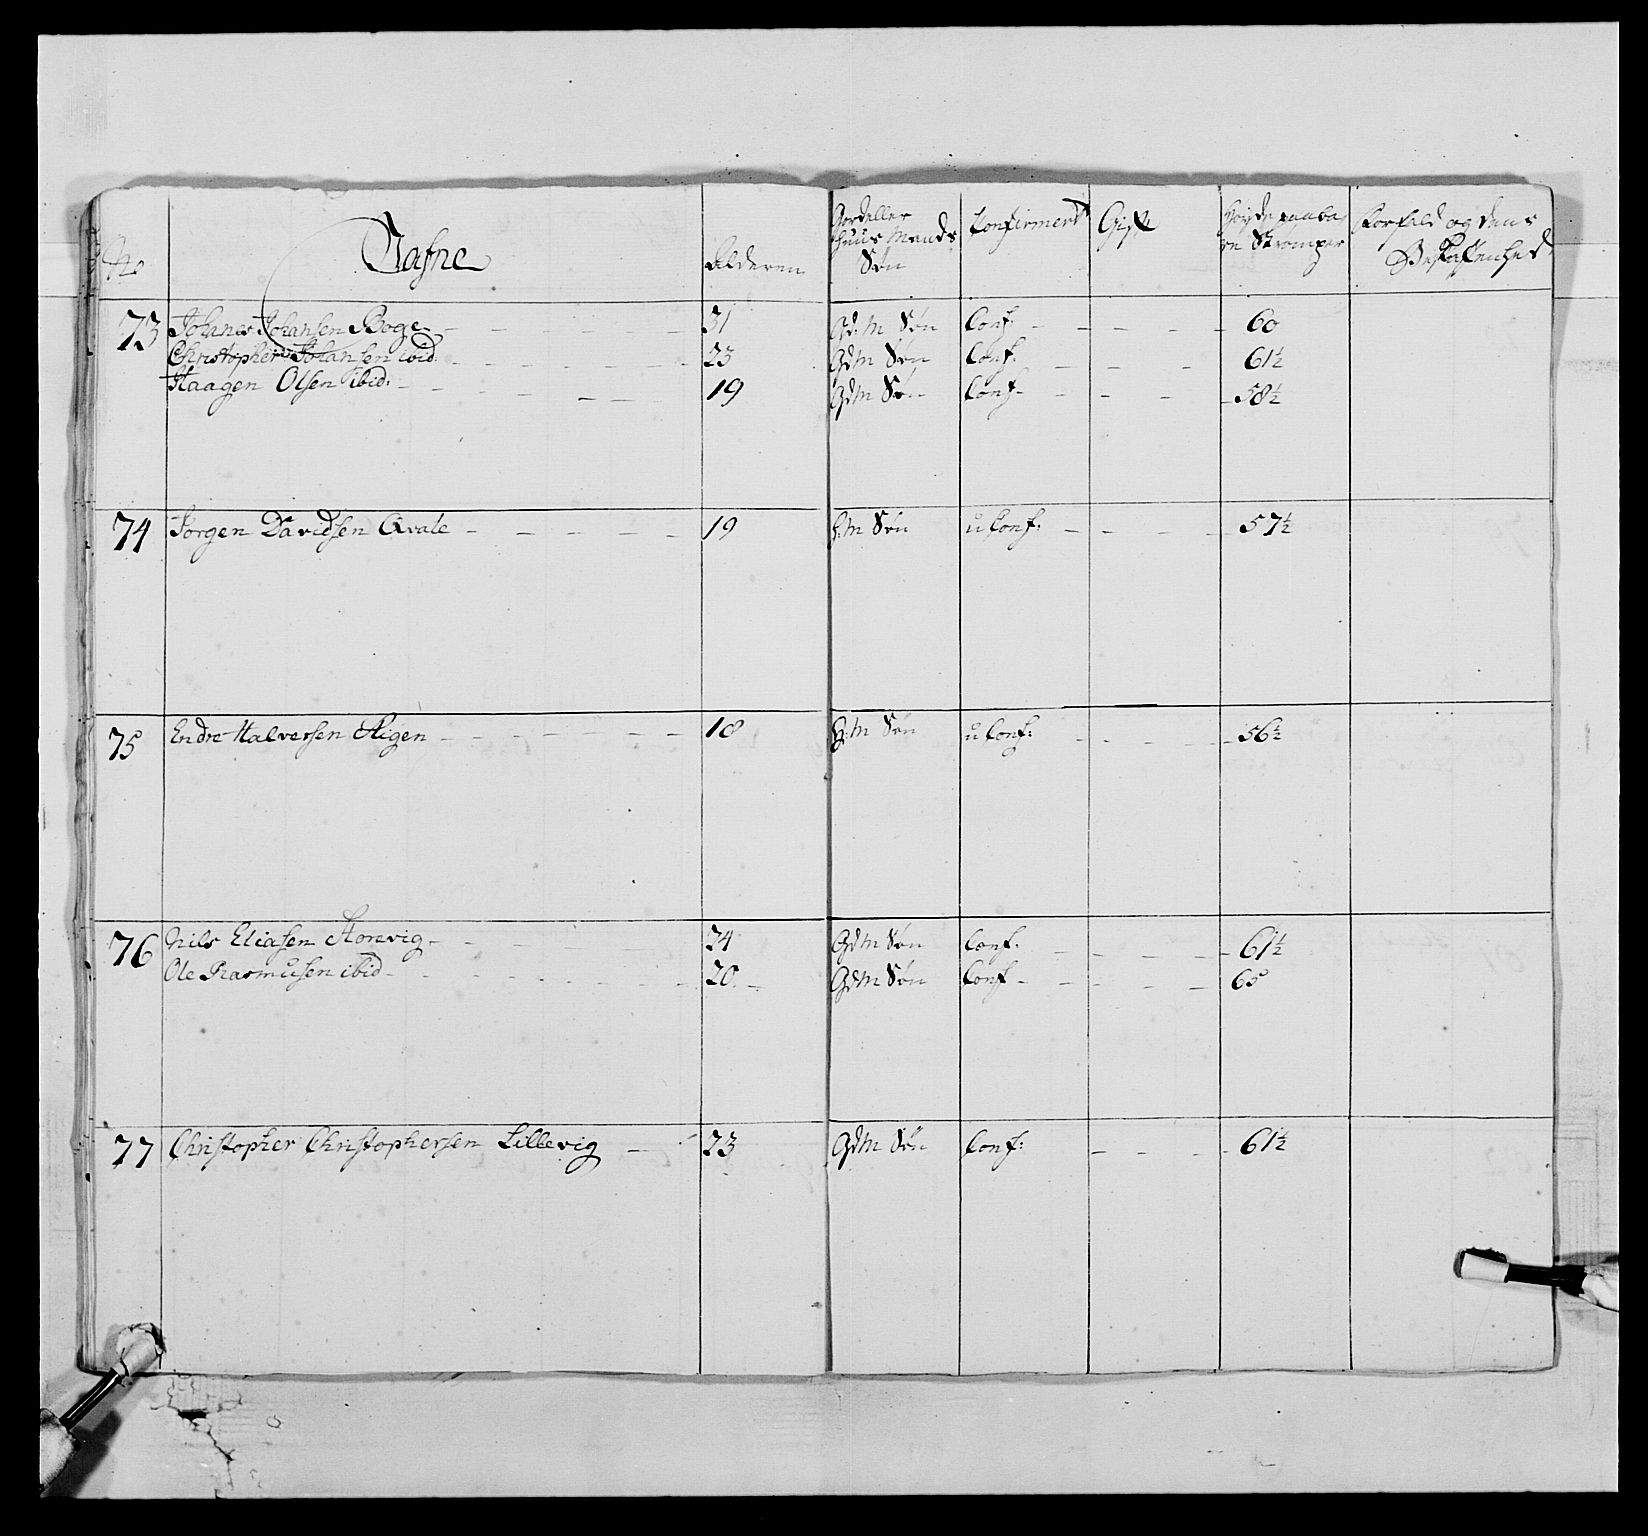 No
Nafne
Alderen
Gord eller
Huus Mands
Søn
Confirmert
Gift
Høyde paa ba
re Strømper
Forfald og dens
Beskafenhed
73 Johanes Johansen Boge 31 Gd: M Søn Conf: 60
Christopher Johansen ibid: 23 Gdm Søn Conf. 61½
Haagen Olsen ibid: 19 GdM Søn Conf 58½
74 Jorgen Davidsen Qvale 19 H:M Søn u Conf: 57½
75 Endre Halversen Rigen 18 H:M Søn u Conf: 56½
76 Nils Eliasen Storevig 24 Gdm Søn Conf. 61½
Ole Rasmusen ibid 20 GdM Søn Conf 65
77 Christopher Christophersen Lillevig 23 GdM Søn Conf: 61½